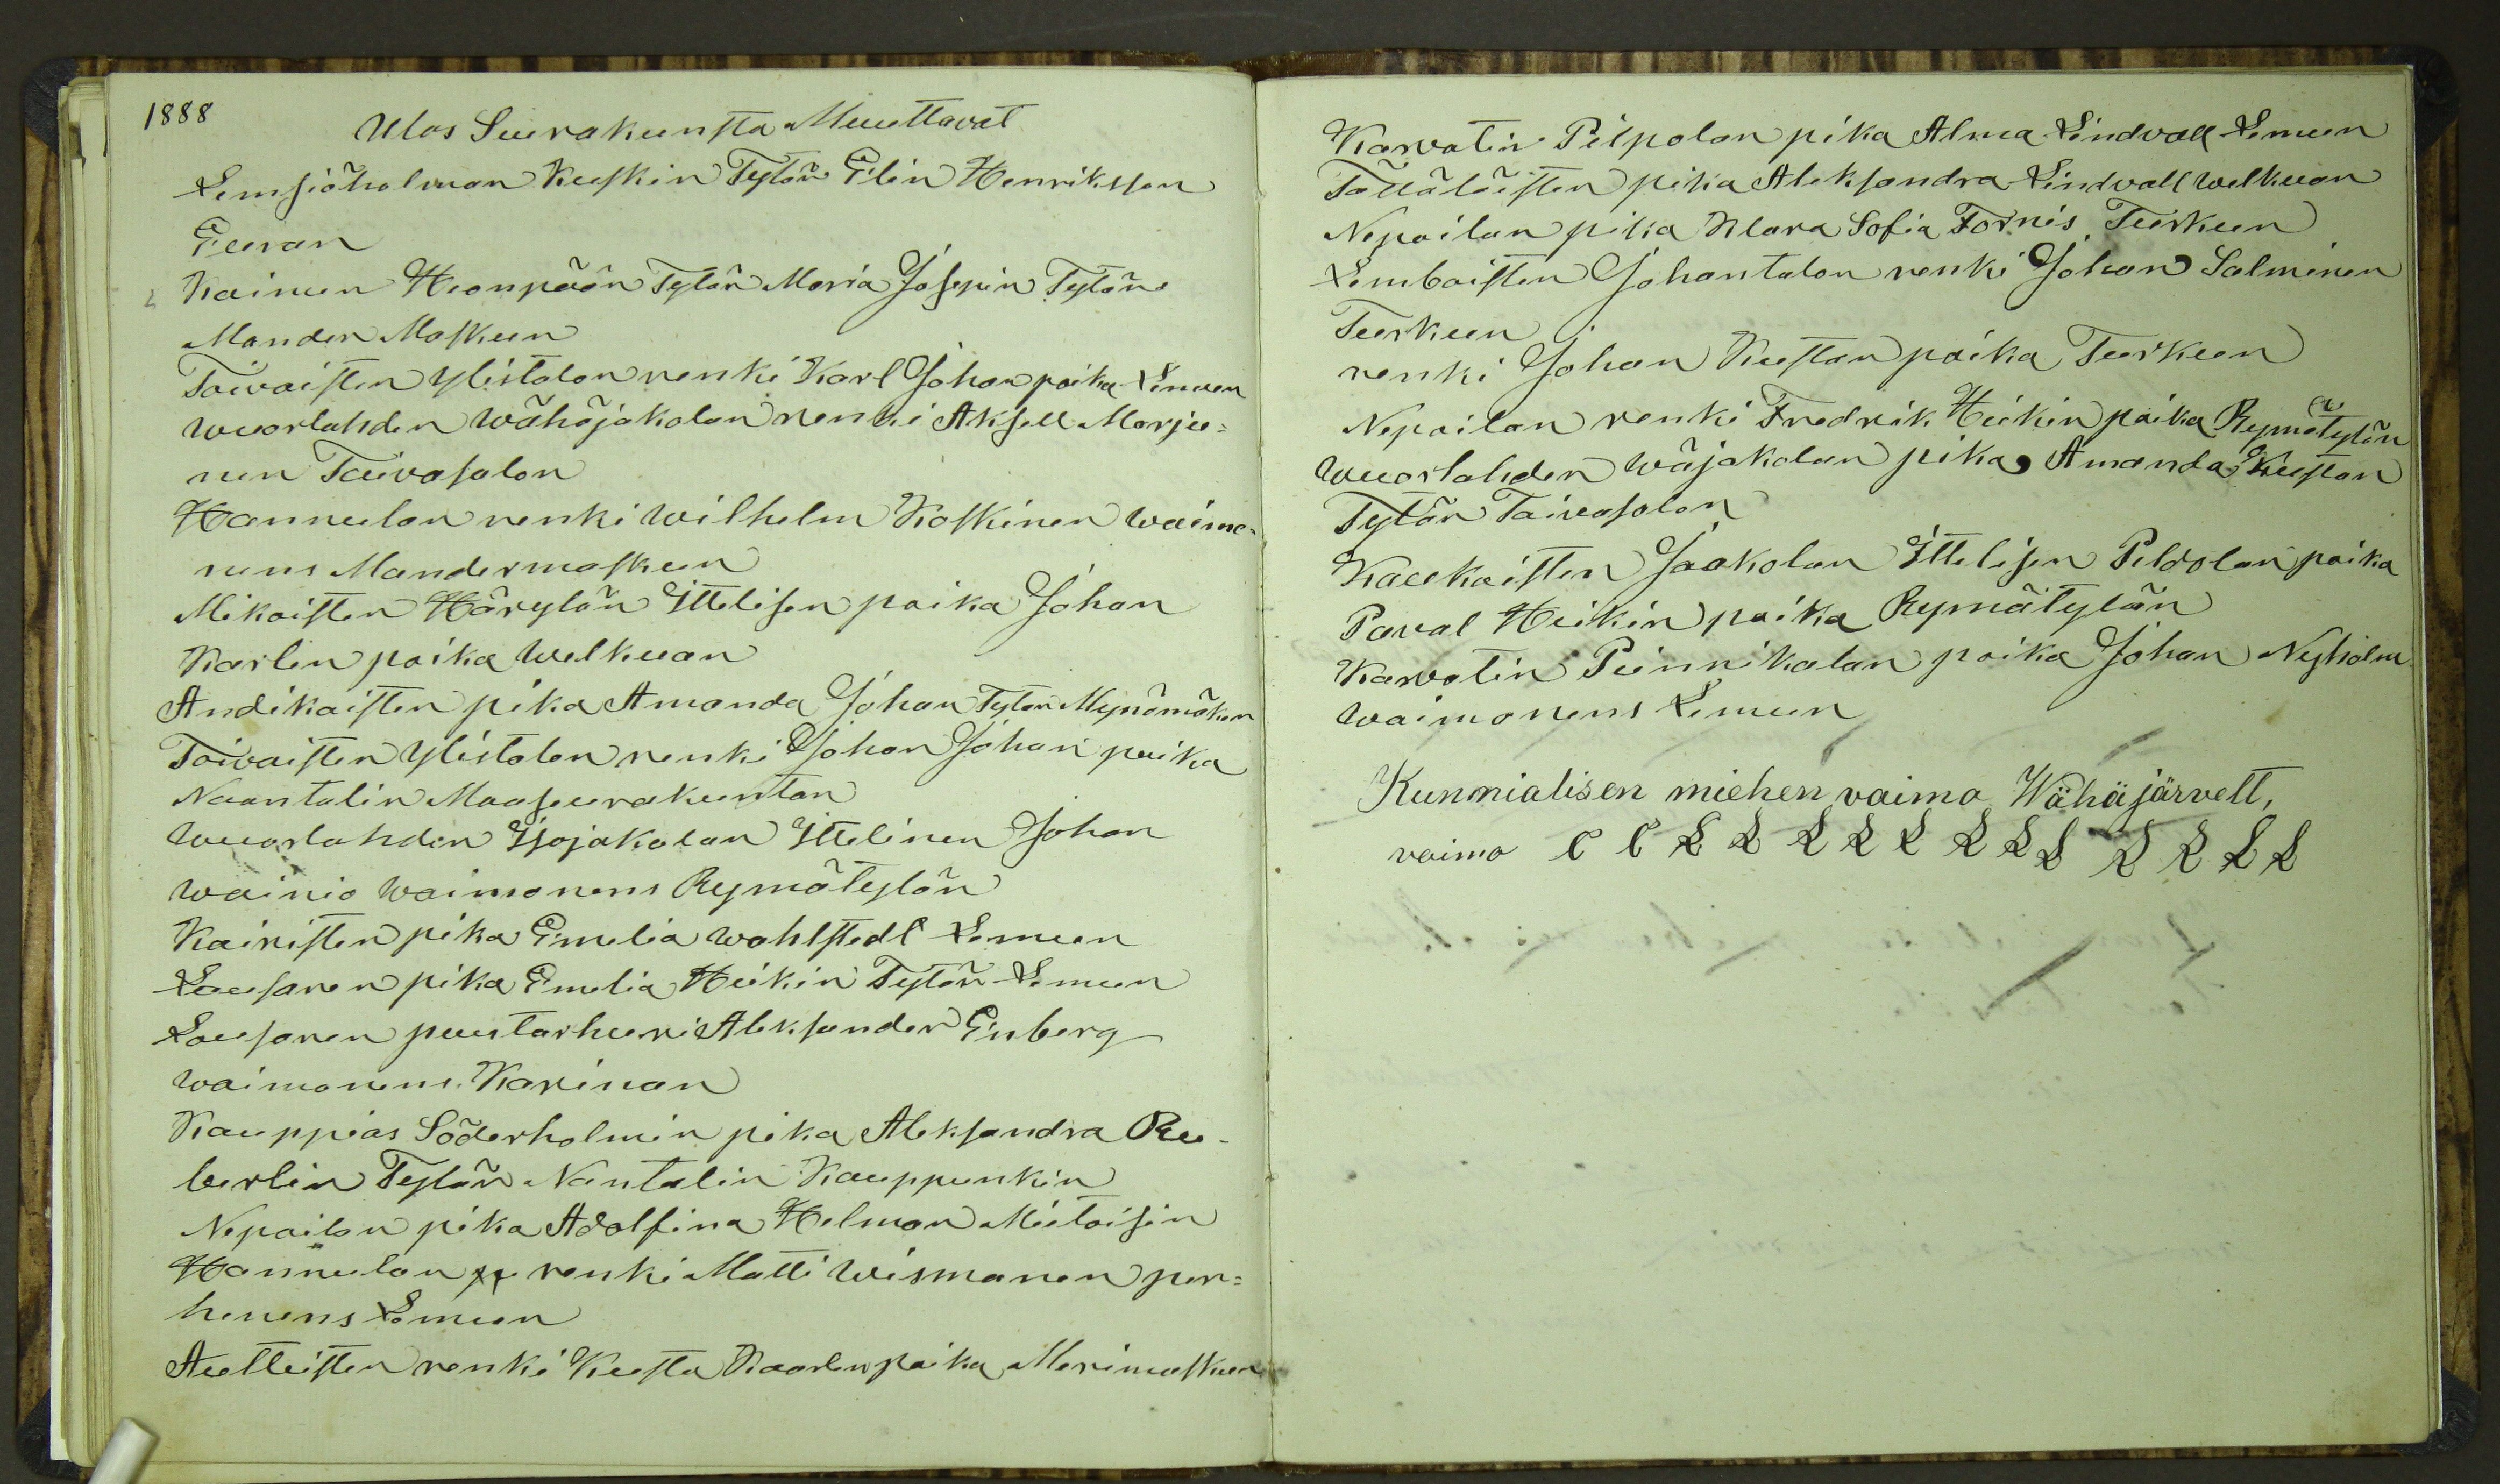 1888
Ulos Seurakunsta Muuttavat
Lemsiöholman Kuskin Tytön Elin Henriksson
Euran
Kaimen Heonpään Tytön Maria Josepin Tytön
Mander Maskuun
Toivaisten Ylistalon renki Karl Johan poika Lemuun
Wuorlahden Wähäjakolan renki Aksell Marju=
nen Taivasalon
Hannulan renki Wilhelm Koskinen Waimo=
nens Mandermaskuun
Mikoisten Härylän Ittelisen poika Johan
Karlin poika Welkuan
Andikaisten pika Amanda Johan Tytön Mynämäken
Toivaisten Ylistalon renki Johan Johan poika
Naantalin Maaseurakuntan
Wuorlahden Isojakolan Ittelinen Johan
Wainio Waimonens Rymätylän
Kairisten pika Emelia Wahlstedt Lemuun
Lousaren pika Emelia Heikin Tytön Lemuun
Lousaren puutarhuri Aleksander Enberg
Waimonens Karinan
Kauppias Söderholmin pika Aleksandra Ru-
berlin Tytön Nantalin Kauppunkin
Nepoilan pika Adolfina Helman Mietoisin
Hannulan renki Matti Wismanen per=
henens Lemuun
Autteisten renki Kusta Kaarlenpoika Merimaskuun
Karvatin Pilpolan pika Alma Lindvall Lemuun
Tättäläisten pika Aleksandra Lindvall Welkuan
Nepoilan pika Klara Sofia Fornis Turkuun
Lemboisten Johantalon renki Johan Salminen
Turkuun
renki Johan Kustan poika Turkuun
Nepoilan renki Fredrik Heikin poika Rymätylän
Wuorlahden Wäjakolan pika Amanda Kustan
Tytön Taivasalon
Kaukoisten Jaakolan Ittelisen Peldolan poika
Paval Heikin poika Rymätylän
Karvatin Pinnikalan poika Johan Nyholm
Waimonens Lemuun
Kunnialisen miehen vaimo Wähäjärvelt,
vaimo C C L L L L L L L L L L L L